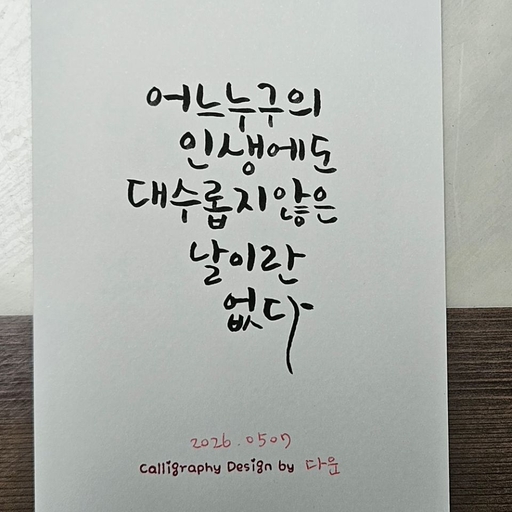 어느누구의
인생에도
대수롭지않은
날이란
없다
2026.0507
Calligraphy Design by 다윤